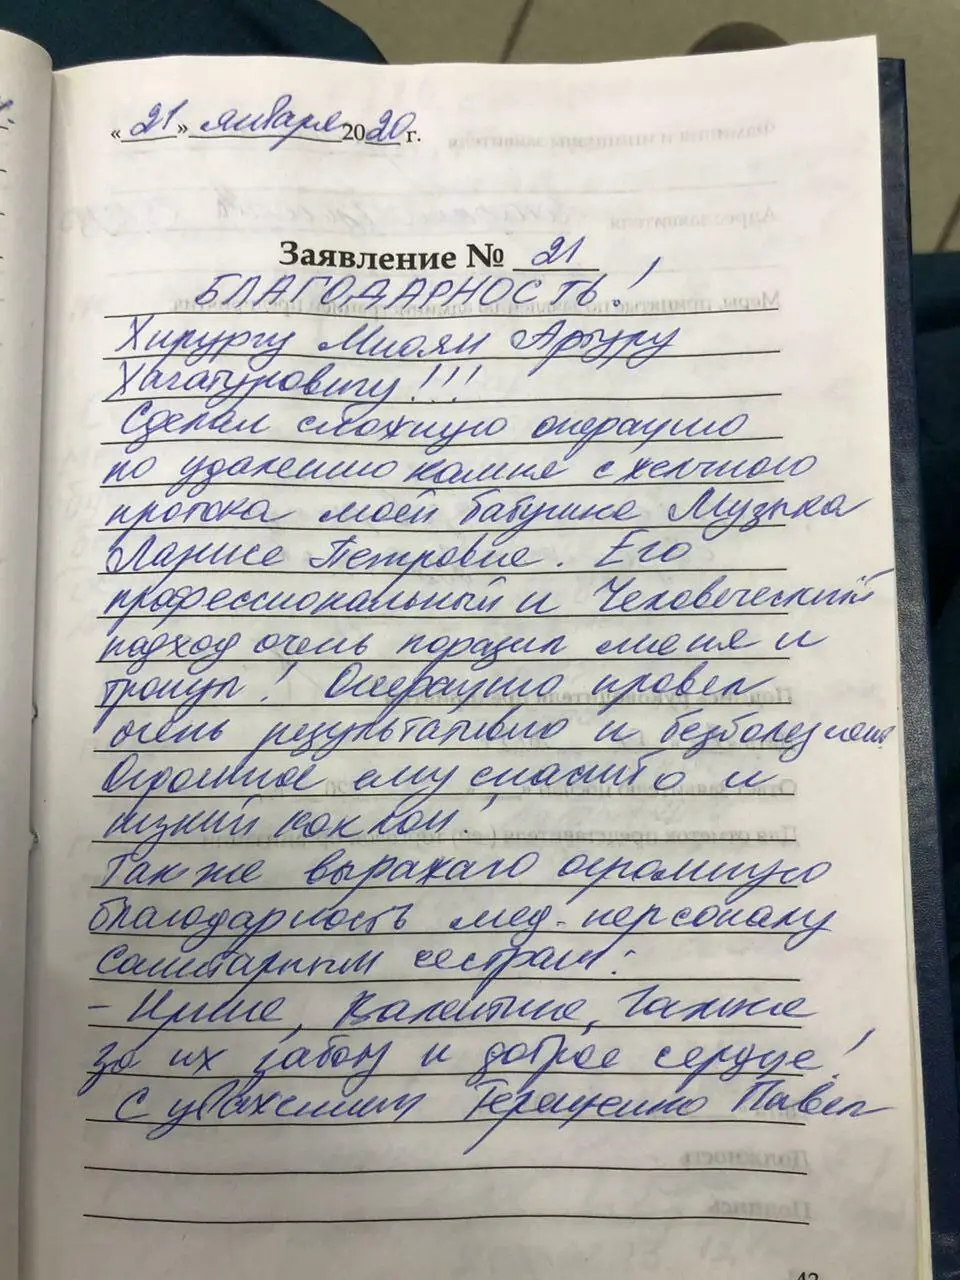 « 21 » января 2020 г.
Заявление № 21
БЛАГОДАРНОСТЬ!
Хирургу Милян Артуру
Хачатуровичу!!!
Сделал сложную операцию
по удалению камня с желчного
протока моей бабушке Музыка
Ларисе Петровне. Его
профессиональный и Человеческий
подход очень поразил меня и
тронул! Операцию провел
очень результативно и безболезненно
Огромное ему спасибо и
низкий поклон!
Также выражаю огромную
благодарность мед-персоналу
санитарным сестрам:
- Ирине, Валентине, Галине
за их заботу и доброе сердце!
С уважением Терещенко Павел
Должность
Подпись
42